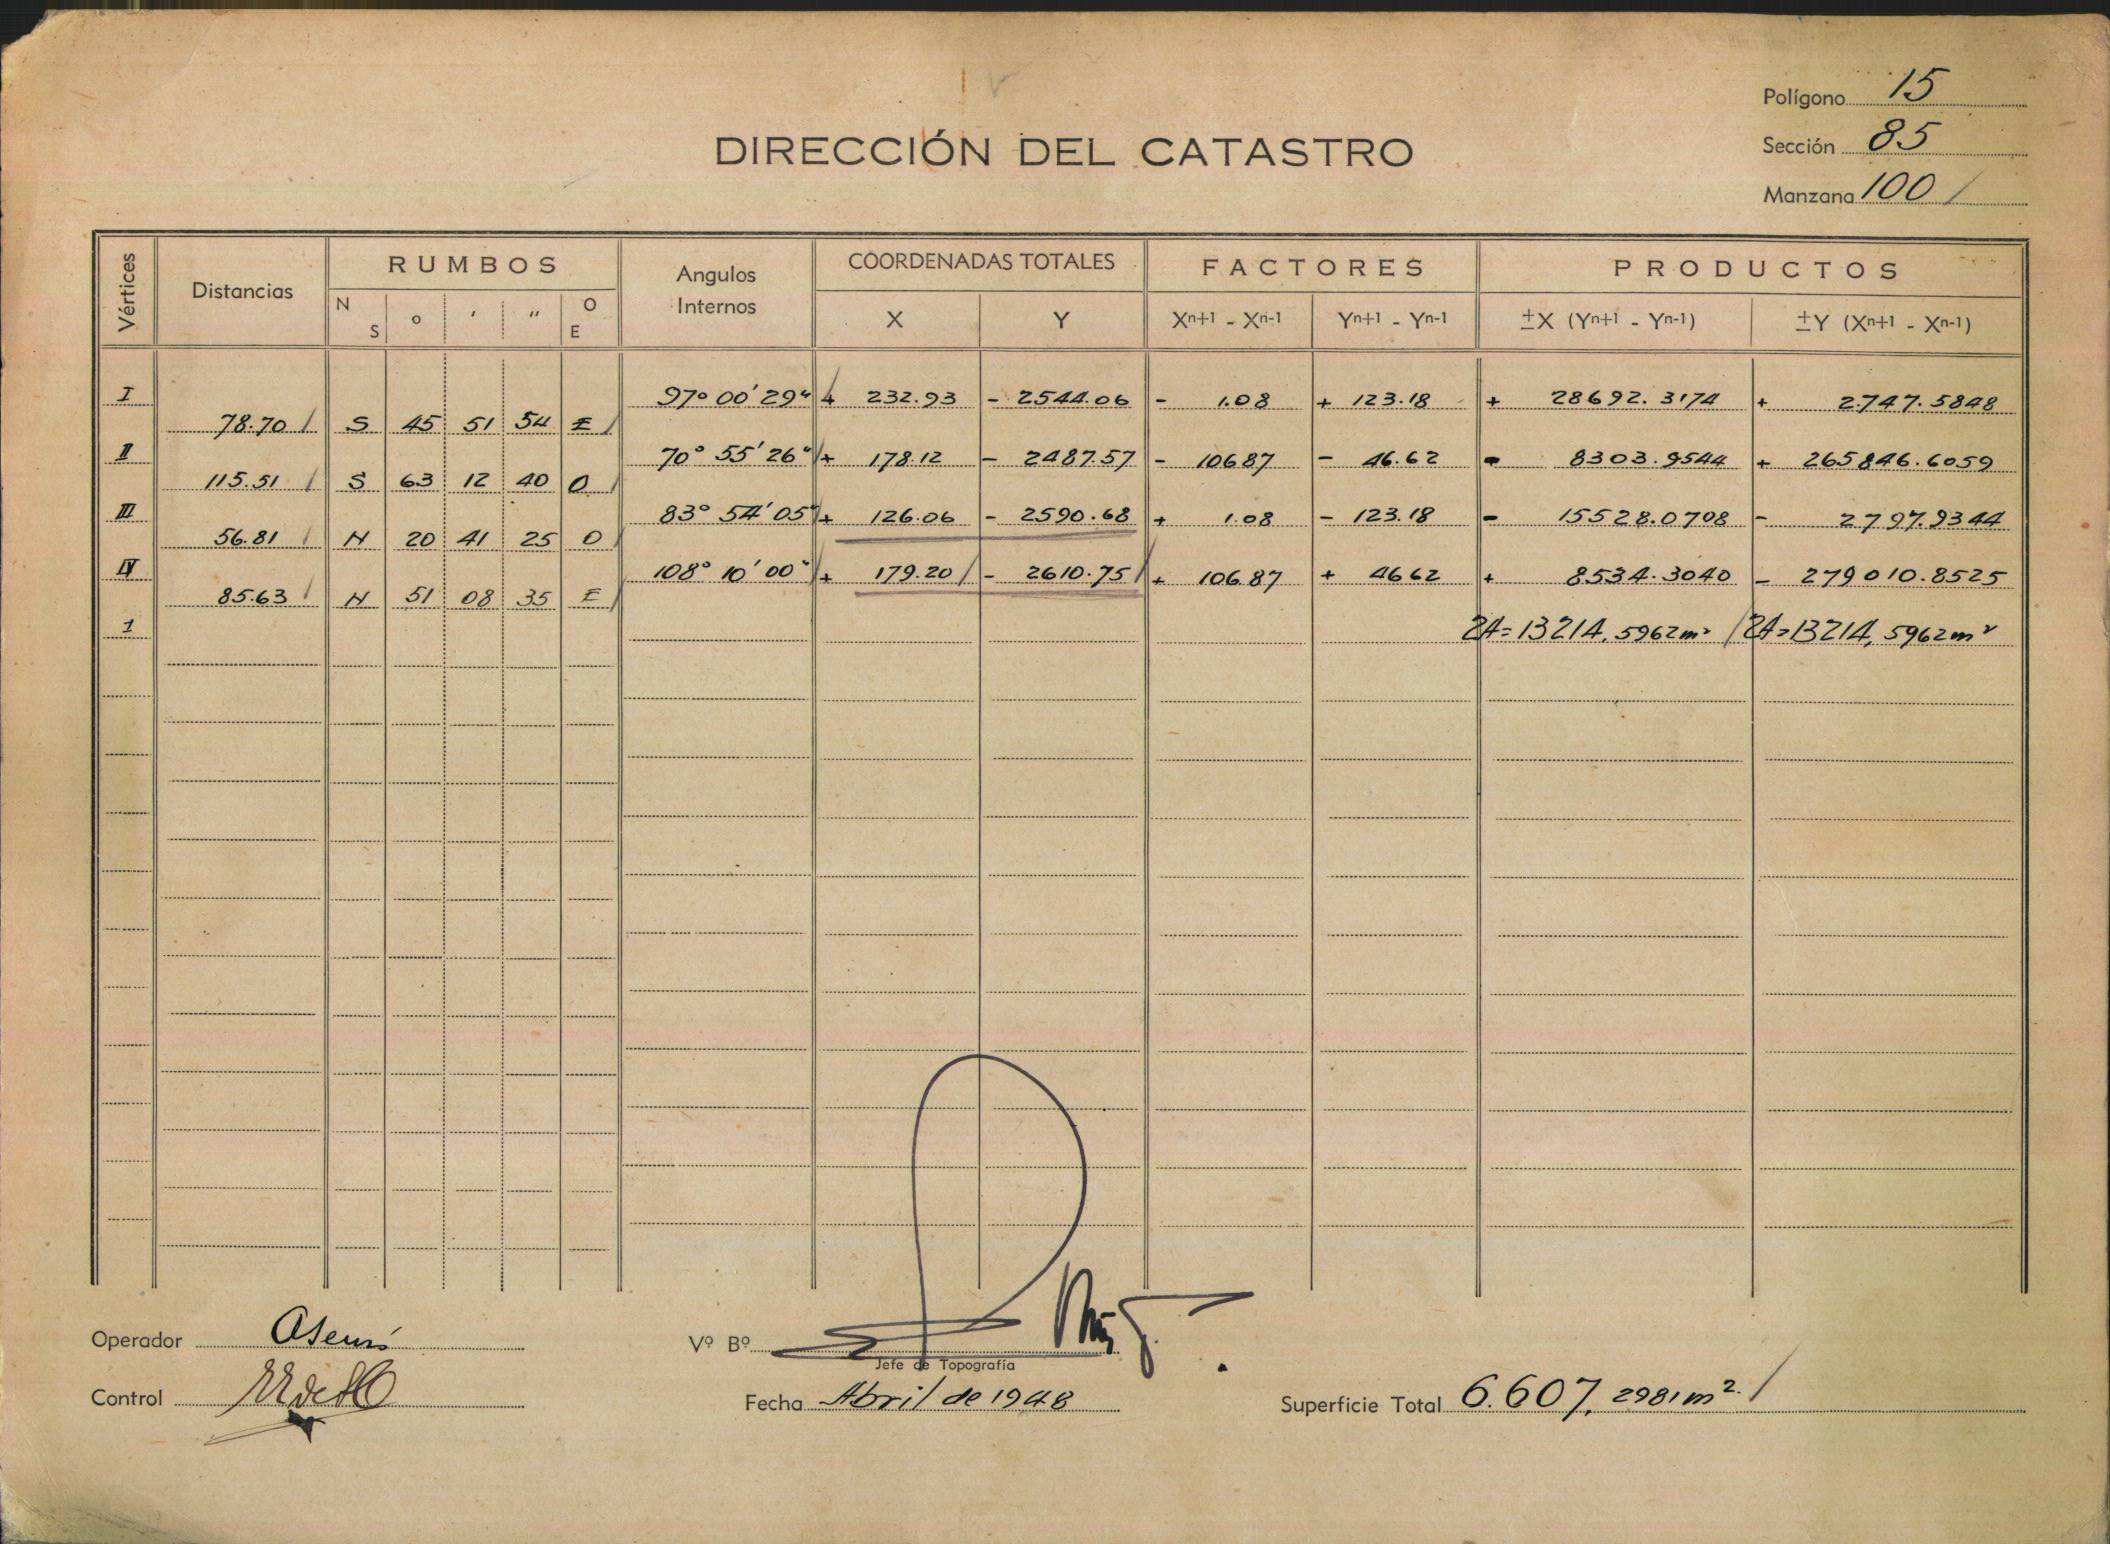 Polígono 15
Sección 85
Manzana 100
DIRECCIÓN DEL CATASTRO
Vértices Distancias RUMBOS Angulos Internos COORDENADAS TOTALES FACTORES PRODUCTOS
N S o ' " O E X Y Xn+1 - Xn-1 Yn+1 - Yn-1 ±X (Yn+1 - Yn-1) ±Y (Xn+1 - Xn-1)
I 97° 00' 29" + 232.93 - 2544.06 - 1.08 + 123.18 + 28692.3174 + 2.747.5848
78.70 S 45 51 54 E
II 70° 55' 26" + 178.12 - 2487.57 - 106.87 - 46.62 - 8303.9544 + 265846.6059
115.51 S 63 12 40 O
III 83° 54' 05" + 126.06 - 2590.68 + 1.08 - 123.18 - 15528.0708 - 2797.9344
56.81 N 20 41 25 O
IV 108° 10' 00" + 179.20 - 2610.75 + 106.87 + 46.62 + 8534.3040 - 279010.8525
85.63 N 51 08 35 E
1 2A=13214,5962 m² 2A=13214,5962 m²
Operador Asensi
Control
Vº Bº
Jefe de Topografía
Fecha Abril de 1948
Superficie Total 6.607,2981 m².